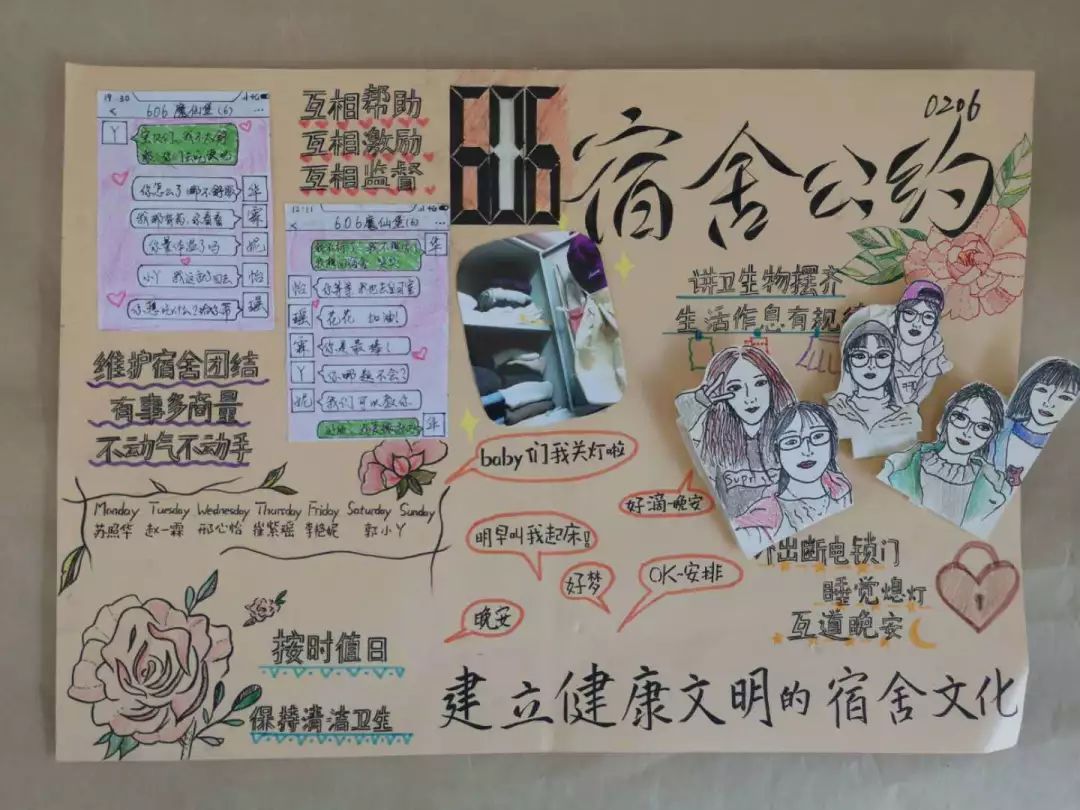 606
宿舍公约
0206
互相帮助
互相激励
互相监督
19:30
606魔仙堡(6)
丫
你怎么了哪不舒服
华
我那有药,你看看
霖
你量体温了吗
妮
小丫 我这就回去
怡
瑶
12:11
606魔仙堡(6)
华
怡
瑶
花花 加油!
霖
你是最棒!
丫
你哪题不会?
妮
我们可以教你
华
讲卫生物摆齐
生活作息有规
维护宿舍团结
有事多商量
不动气不动手
Monday Tuesday Wednesday Thursday Friday Saturday Sunday
苏照华 赵一霖 邢心怡 崔紫瑶 李艳妮 郭小丫
baby们我关灯啦
好滴~晚安
明早叫我起床!
好梦
OK~安排
晚安
出断电锁门
睡觉熄灯
互道晚安
按时值日
保持清洁卫生
建立健康文明的宿舍文化